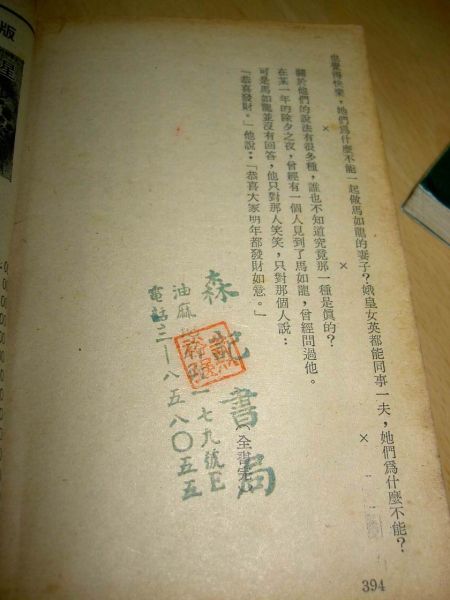 也覺得快樂,她們爲什麼不能一起做馬如龍的妻子?娥皇女英都能同事一夫,她們爲什麼不能?
× × ×
關於他們的說法有很多種,誰也不知道究竟那一種是眞的?
在某一年的除夕之夜,曾經有一個人見到了馬如龍,曾經問過他。
可是馬如龍並沒有回答,他只對那人笑笑,只對那個人說:
「恭喜發財。」他說:「恭喜大家明年都發財如意。」
(全書完)
森記書局
油麻 一七九號E
電話三—八五八〇五五
394
版